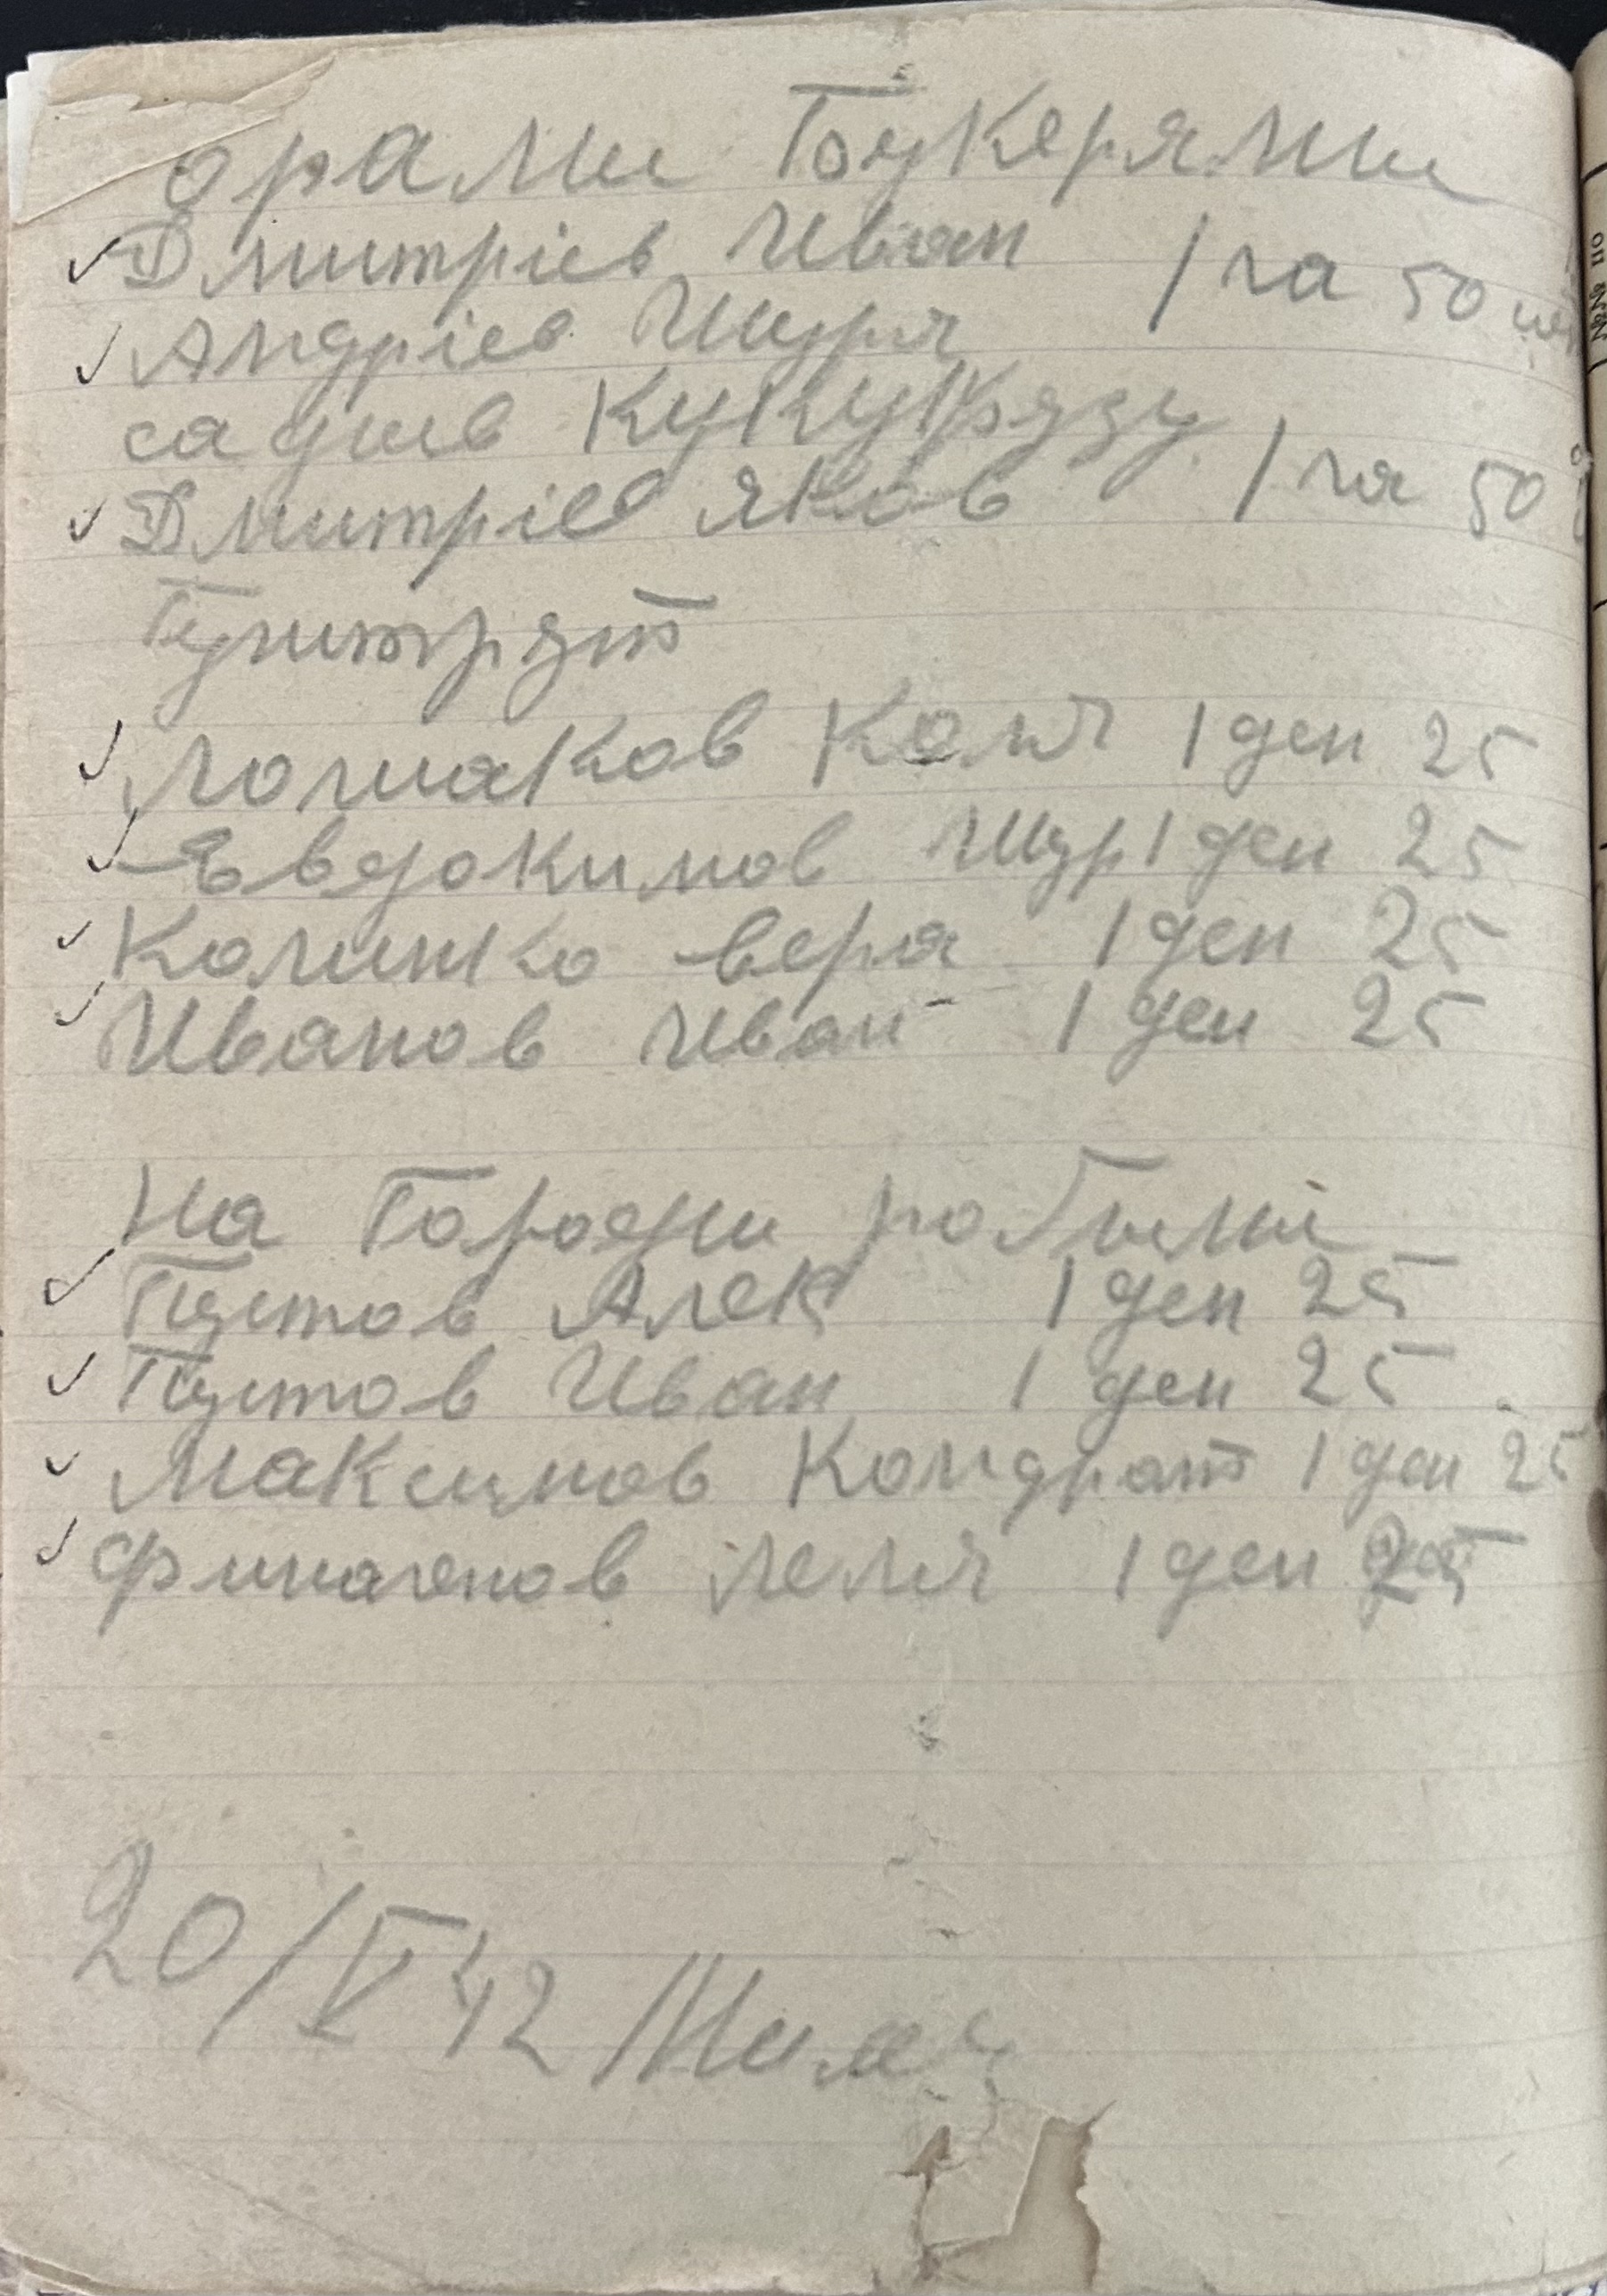 орали Букерями
Дмитріев Иван 1 га 50
Андріев Шуря
садив Кукурузу
Дмитріев Яков 1 га 50
Лошаков Коля 1 ден 25
Евдокимов Шур 1 ден 25
Колинко вера 1 ден 25
Иванов Иван 1 ден 25
На Городи робили
Пустов Алек 1 ден 25
Пустов Иван 1 ден 25
Максимов Кондрат 1 ден 25
Финагенов леля 1 ден 25
20/V 42